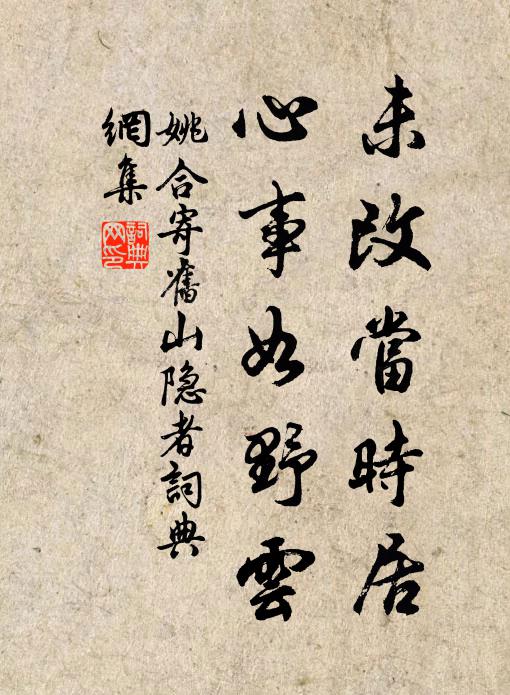 未改當時居
心事如野雲
姚合寄舊山隐者詞典
網集
詞典
网印